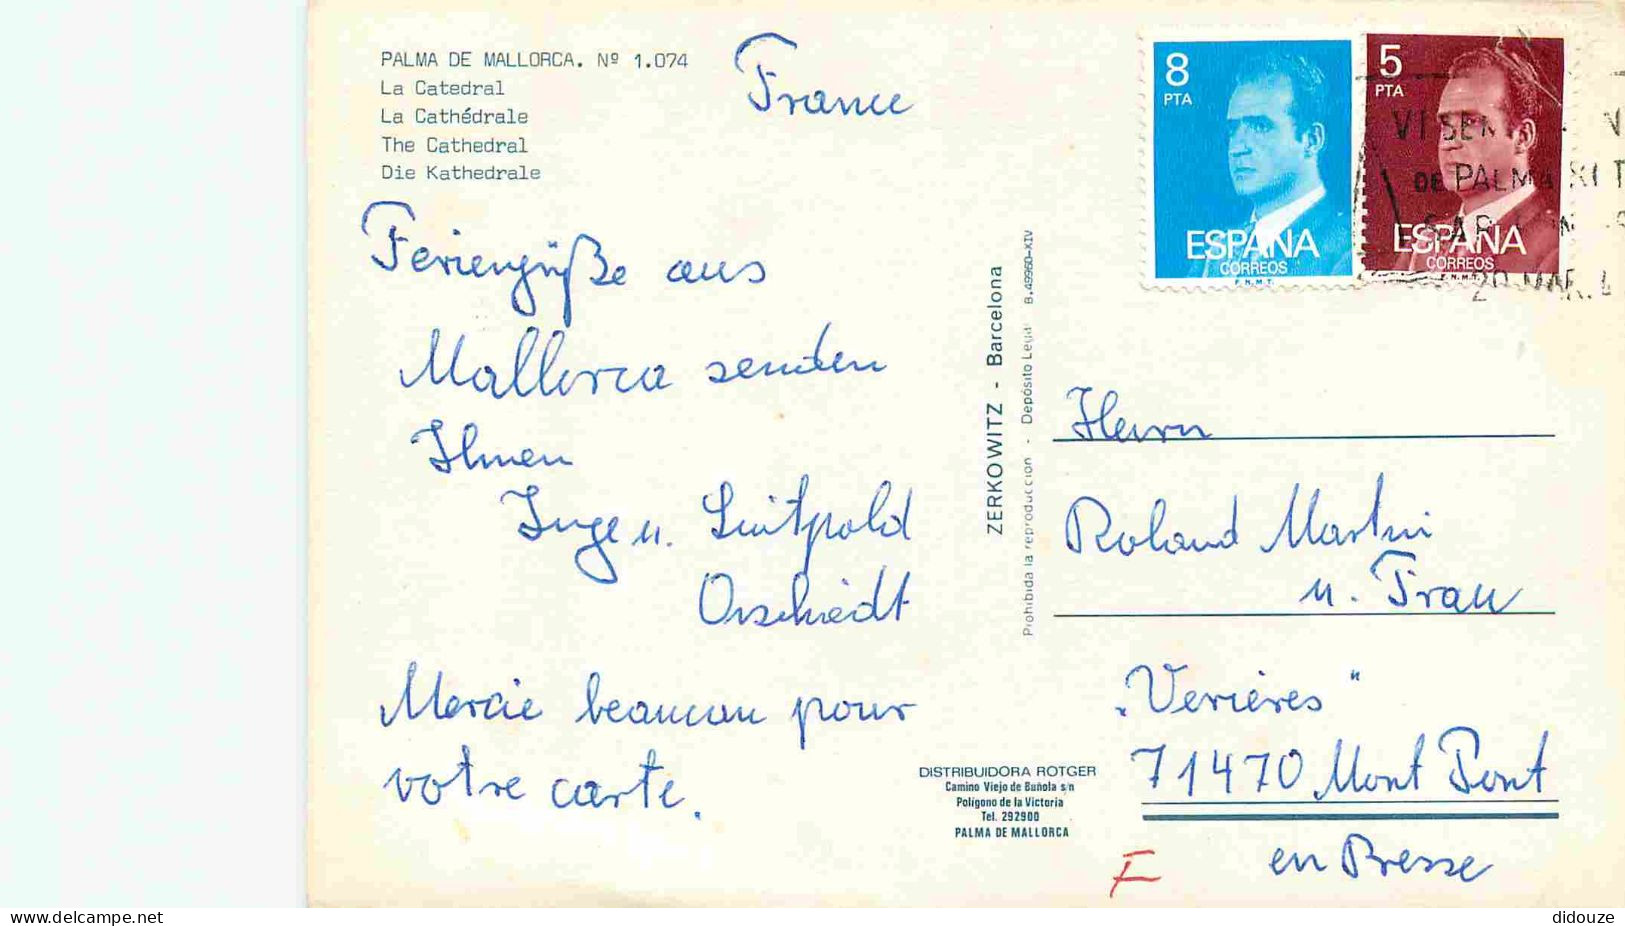 PALMA DE MALLORCA. Nº 1.074
La Catedral
La Cathédrale
The Cathedral
Die Kathedrale
France
Feriengrüße aus
Mallorca senden
Ihnen
Inge u. Luitpold
Orschiedt
Mercie beaucau pour
votre carte.
ZERKOWITZ - Barcelona
Prohibida la reproducción - Depósito Legal B.49960-XIV
DISTRIBUIDORA ROTGER
Camino Viejo de Buñola s/n
Polígono de la Victoria
Tel. 292900
PALMA DE MALLORCA
8
PTA
ESPAÑA
CORREOS
F.N.M.T.
5
PTA
ESPAÑA
CORREOS
F.N.M.T.
VI
DE PALMA
MAR.
Herrn
Roland Martin
u. Frau
„Verières"
71470 Mont Pont
en Bresse
F
delcampe.net
didouze